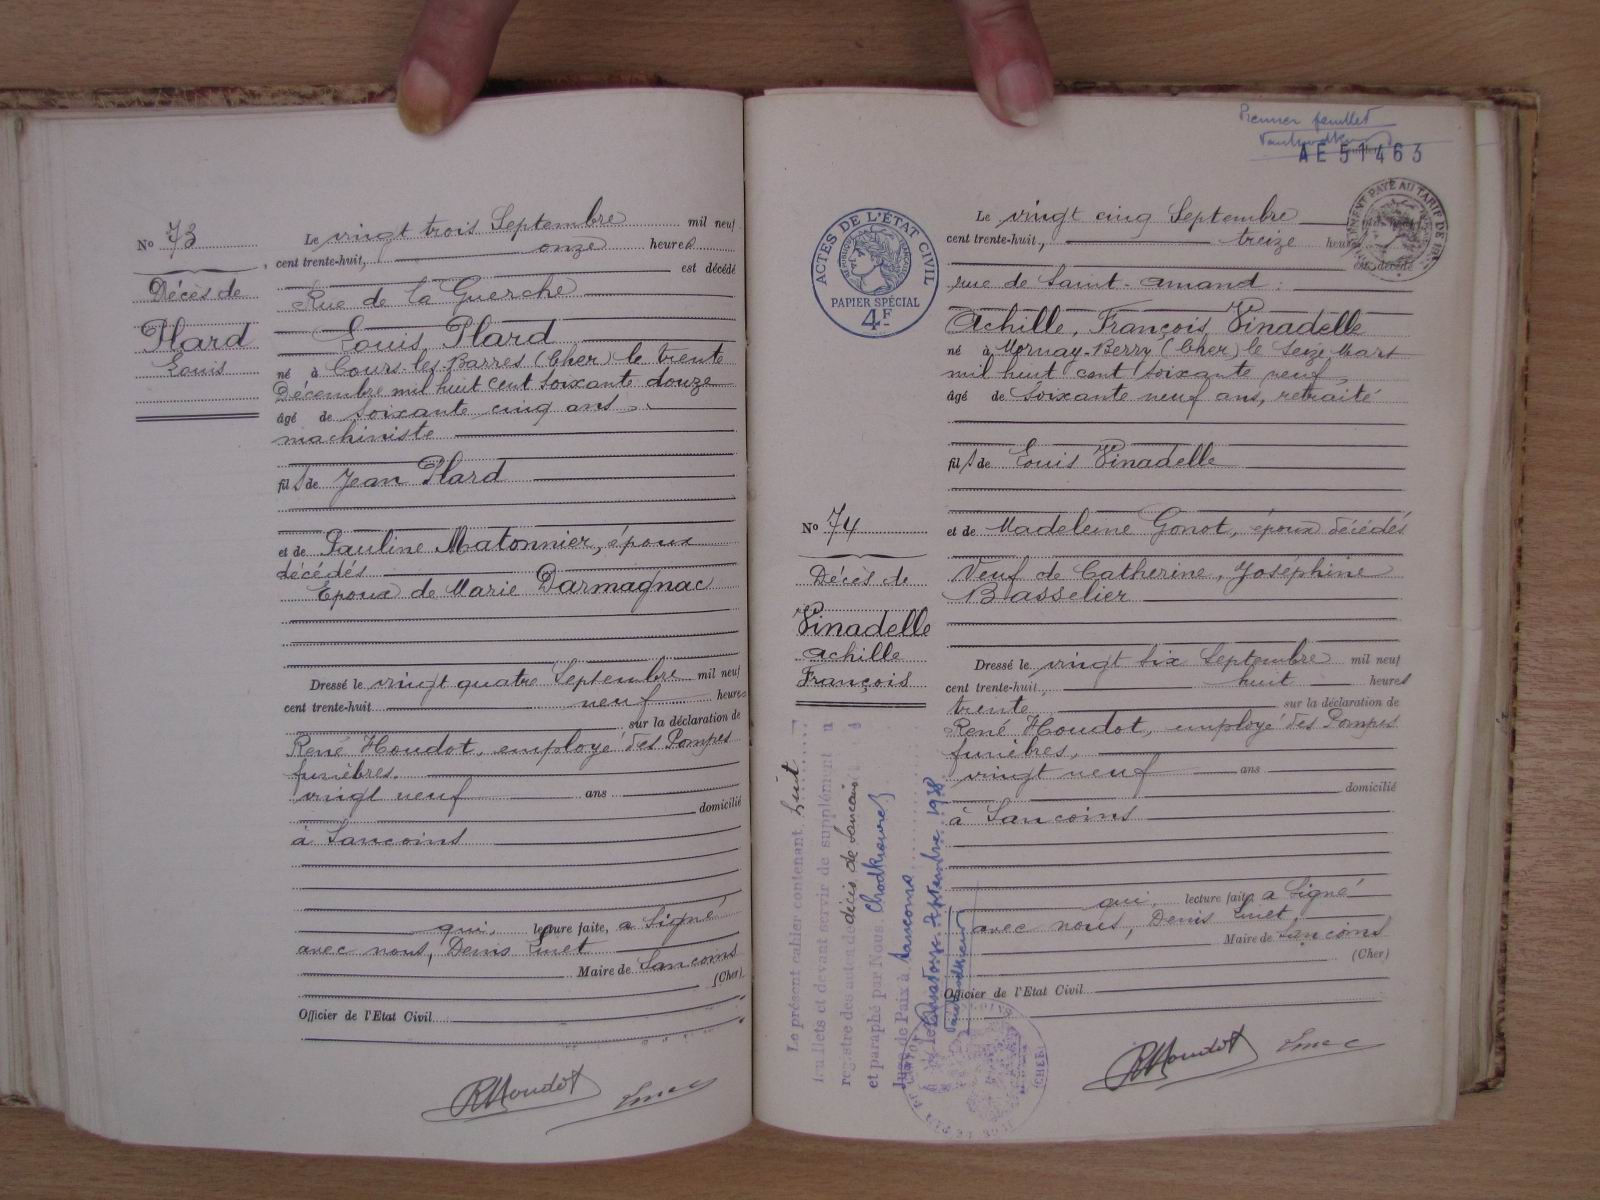 No 73
Décès de
Plard
Louis
Le vingt trois Septembre mil neuf
cent trente-huit, onze heures
est décédé
Rue de la Guerche
Louis, Plard
né à Cours-les-Barres (Cher) le trente
Décembre mil huit cent soixante douze
âgé de soixante cinq ans
machiniste
fils de Jean Plard
et de Pauline Matonnier, époux
décédés
Epoux de Marie Darmagnac
Dressé le vingt quatre Septembre mil neuf
cent trente-huit neuf heures
sur la déclaration de
René Houdot, employé des Pompes
funèbres.
vingt neuf ans
domicilié
à Sancoins
qui, lecture faite, a signé
avec nous, Denis
Maire de Sancoins
(Cher)
Officier de l'Etat Civil
RHoudot
Premier feuillet
AE 51463
ACTES DE L'ÉTAT CIVIL
RÉPUBLIQUE FRANÇAISE
PAPIER SPÉCIAL
4F
PAYÉ AU TARIF DE
Le vingt cinq Septembre
cent trente-huit, treize heures
est décédé
rue de Saint-Amand :
Achille, François, Vinadelle
né à Mornay-Berry (Cher) le seize Mars
mil huit cent soixante neuf
âgé de soixante neuf ans, retraité
fils de Louis Vinadelle
No 74
Décès de
Vinadelle
Achille
François
et de Madeleine Gonot, époux décédés
Veuf de Catherine, Joséphine
Basselier
Dressé le vingt six Septembre mil neuf
cent trente-huit, huit heures
trente sur la déclaration de
René Houdot, employé des Pompes
funèbres,
vingt neuf ans
domicilié
à Sancoins
qui, lecture faite, a signé
avec nous, Denis
Maire de Sancoins
(Cher)
Officier de l'Etat Civil
RHoudot
Le présent cahier contenant huit
feuillets et devant servir de supplément au
registre des actes de décès de Sancoins
et paraphé par Nous
Juge de Paix à Sancoins
le quatorze Septembre 1938
(CHER)